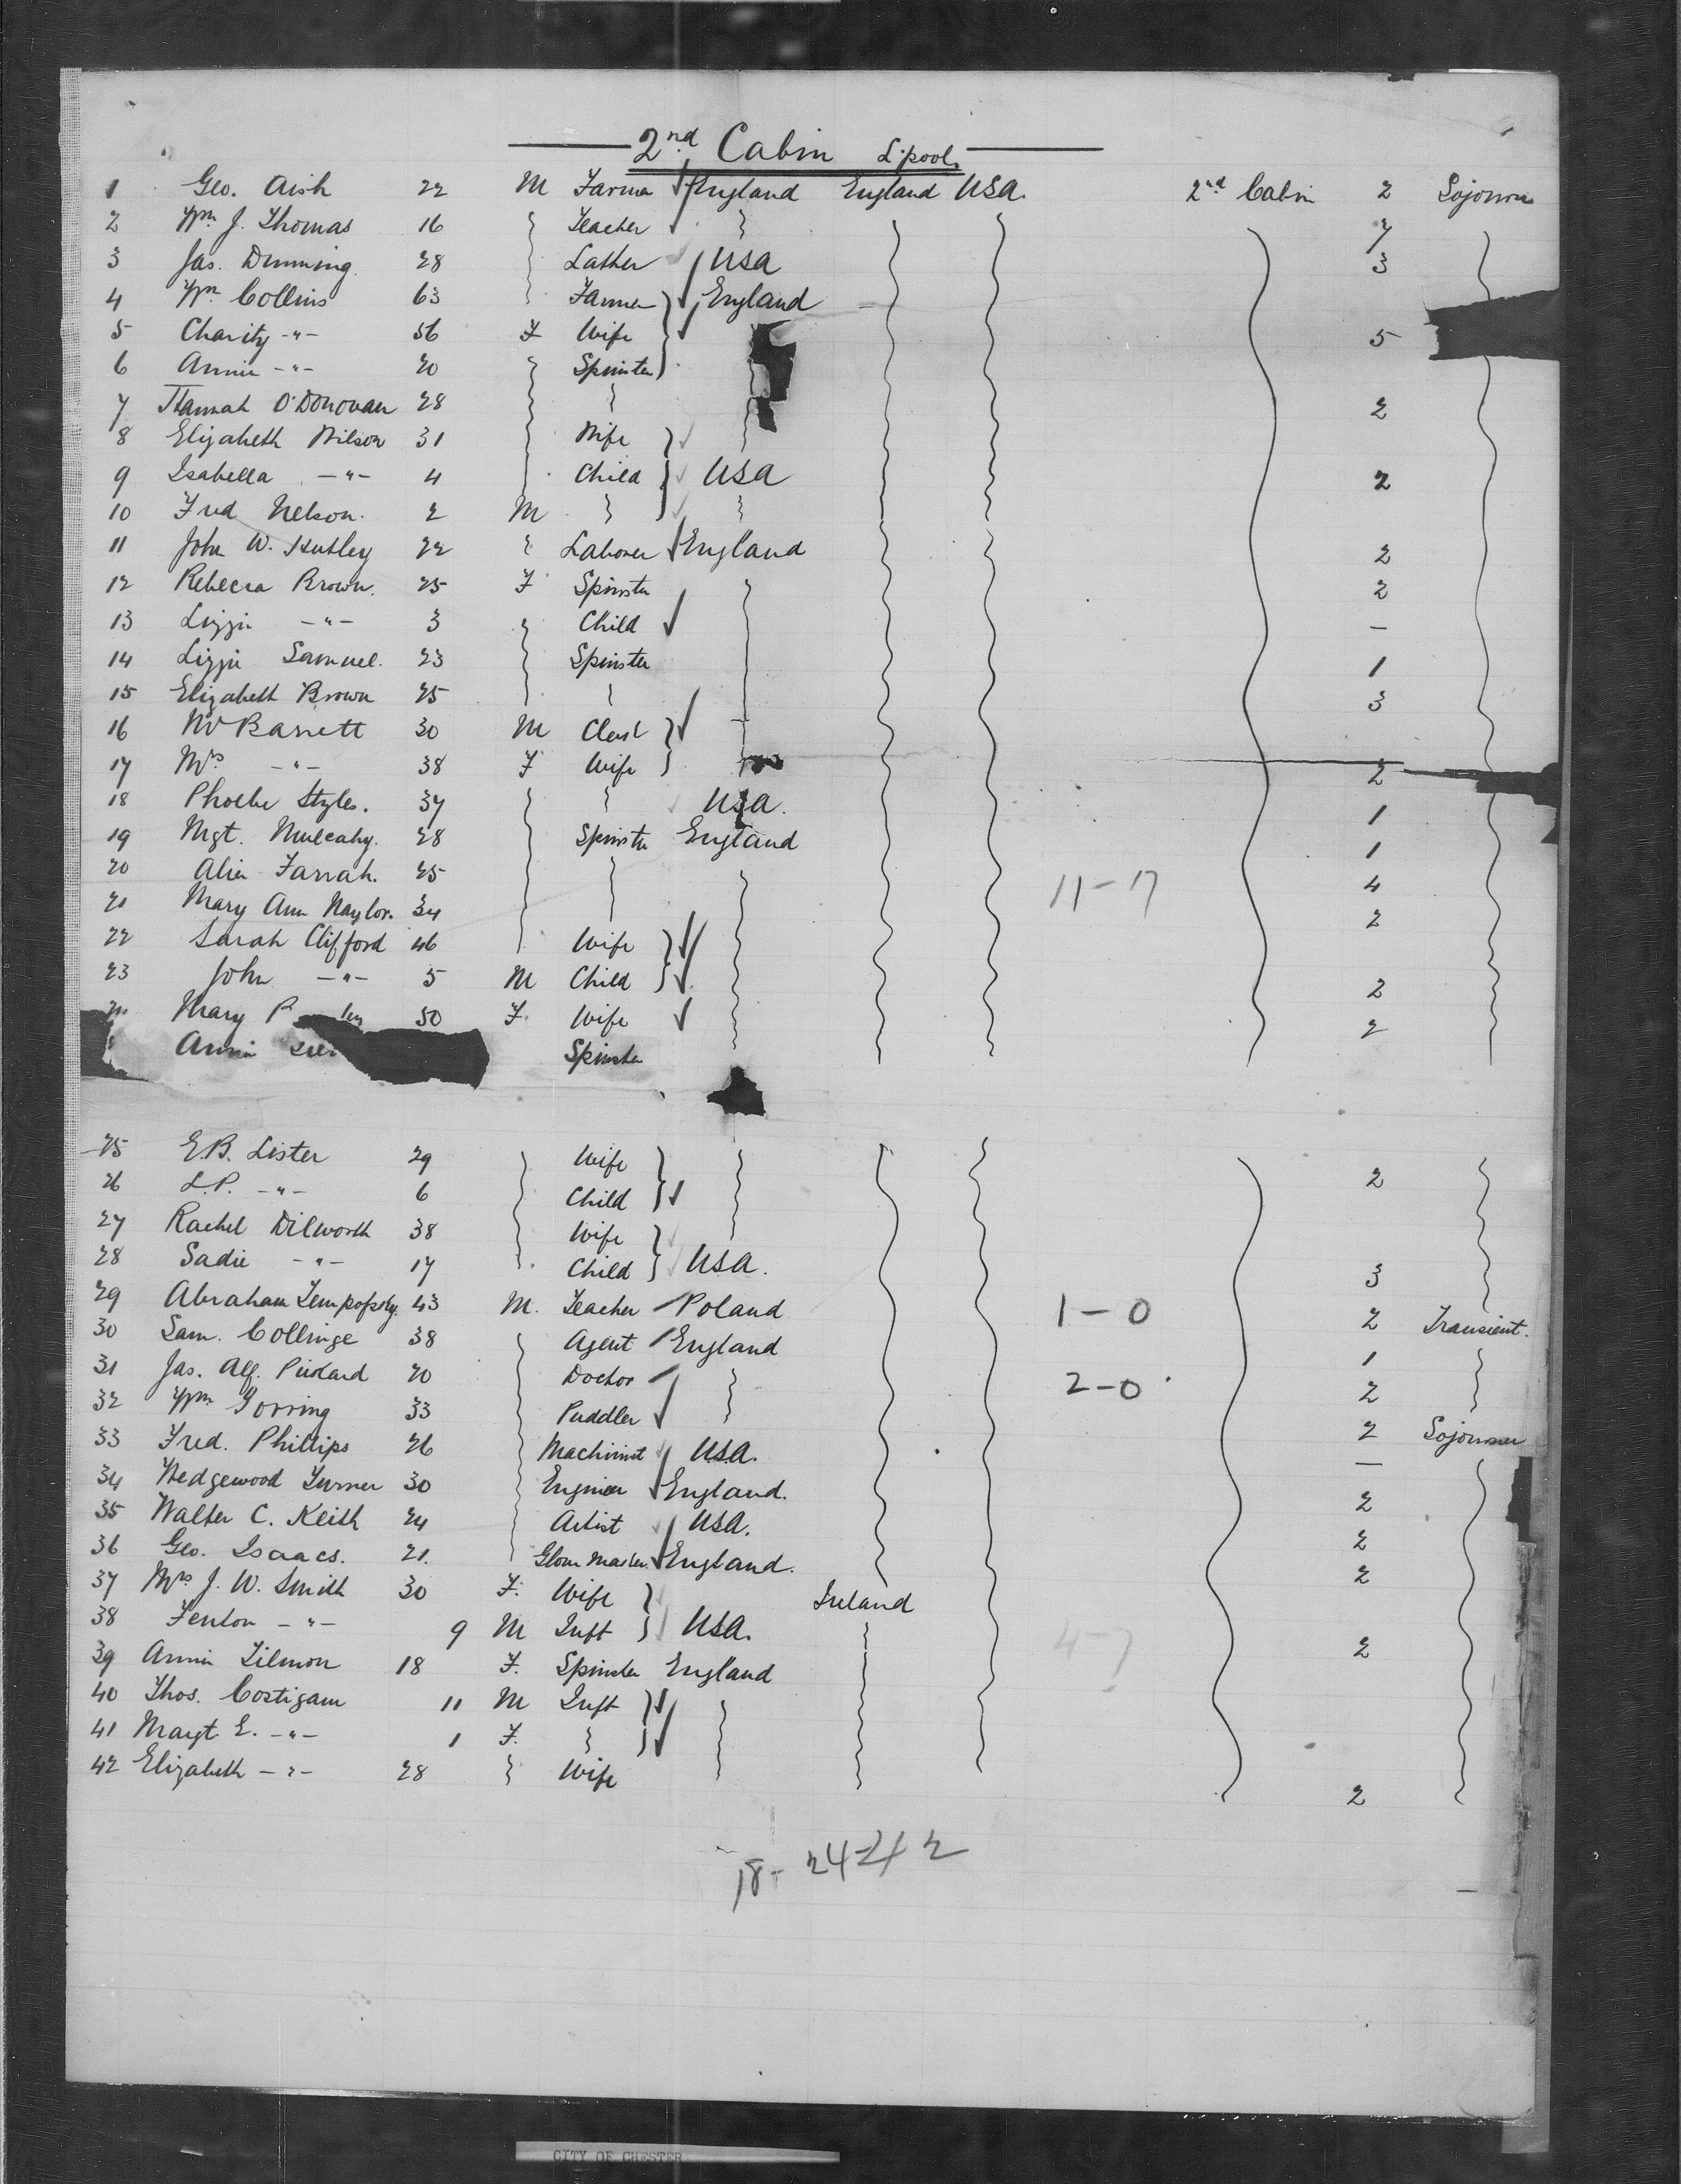 2nd Cabin L'pool.
1 Geo. Aish 22 M Farmer England England USA. 2nd Cabin 2 Sojourner
2 Wm J. Thomas 16 Teacher 7
3 Jas. Dunning. 28 Lather USA 3
4 Wm Collins 63 Farmer England
5 Charity -"- 56 F Wife 5
6 Annie -"- 20 Spinster
7 Hannah O'Donovan 28 2
8 Elizabeth Wilson 31 Wife
9 Isabella -"- 4 Child USA 2
10 Fred Nelson. 2 M
11 John W. Hutley 22 Laborer England 2
12 Rebecca Brown. 25 F Spinster 2
13 Lizzie -"- 3 Child -
14 Lizzie Samuel. 23 Spinster 1
15 Elizabeth Brown 25 3
16 Mr Barrett 30 M
17 Mrs -"- 38 F Wife 2
18 Phoebe Styles. 37 USA. 1
19 Mgt. Mulcahy. 28 Spinster England 1
20 Alice Farrah. 25 11-17 4
21 Mary Ann Naylor. 34 2
22 Sarah Clifford 46 Wife
23 John -"- 5 M Child 2
Mary 50 F. Wife 2
Annie Spinster
25 E.B. Lister 29 Wife
26 L.P. -"- 6 Child 2
27 Rachel Dilworth 38 Wife
28 Sadie -"- 17 Child USA. 3
29 Abraham 43 M. Teacher Poland 1-0 2 Transient.
30 Sam. Collinge 38 Agent England 1
31 Jas. Alf. Pickard 20 Doctor 2-0 2
32 Wm Gorring 33 Puddler 2 Sojourner
33 Fred. Phillips 26 Machinist USA. -
34 Wedgewood Turner 30 Engineer England. 2
35 Walter C. Keith 24 Artist USA. 2
36 Geo. Isaacs. 21. England. 2
37 Mrs J. W. Smith 30 F. Wife Ireland
38 Fenton -"- 9 M Inft USA. 4-7 2
39 Annie Tilmon 18 F. Spinster England
40 Thos. Costigam 11 M Inft
41 Margt. E. -"- 1 F.
42 Elizabeth -"- 28 Wife 2
18- 24 42
CITY OF CHESTER